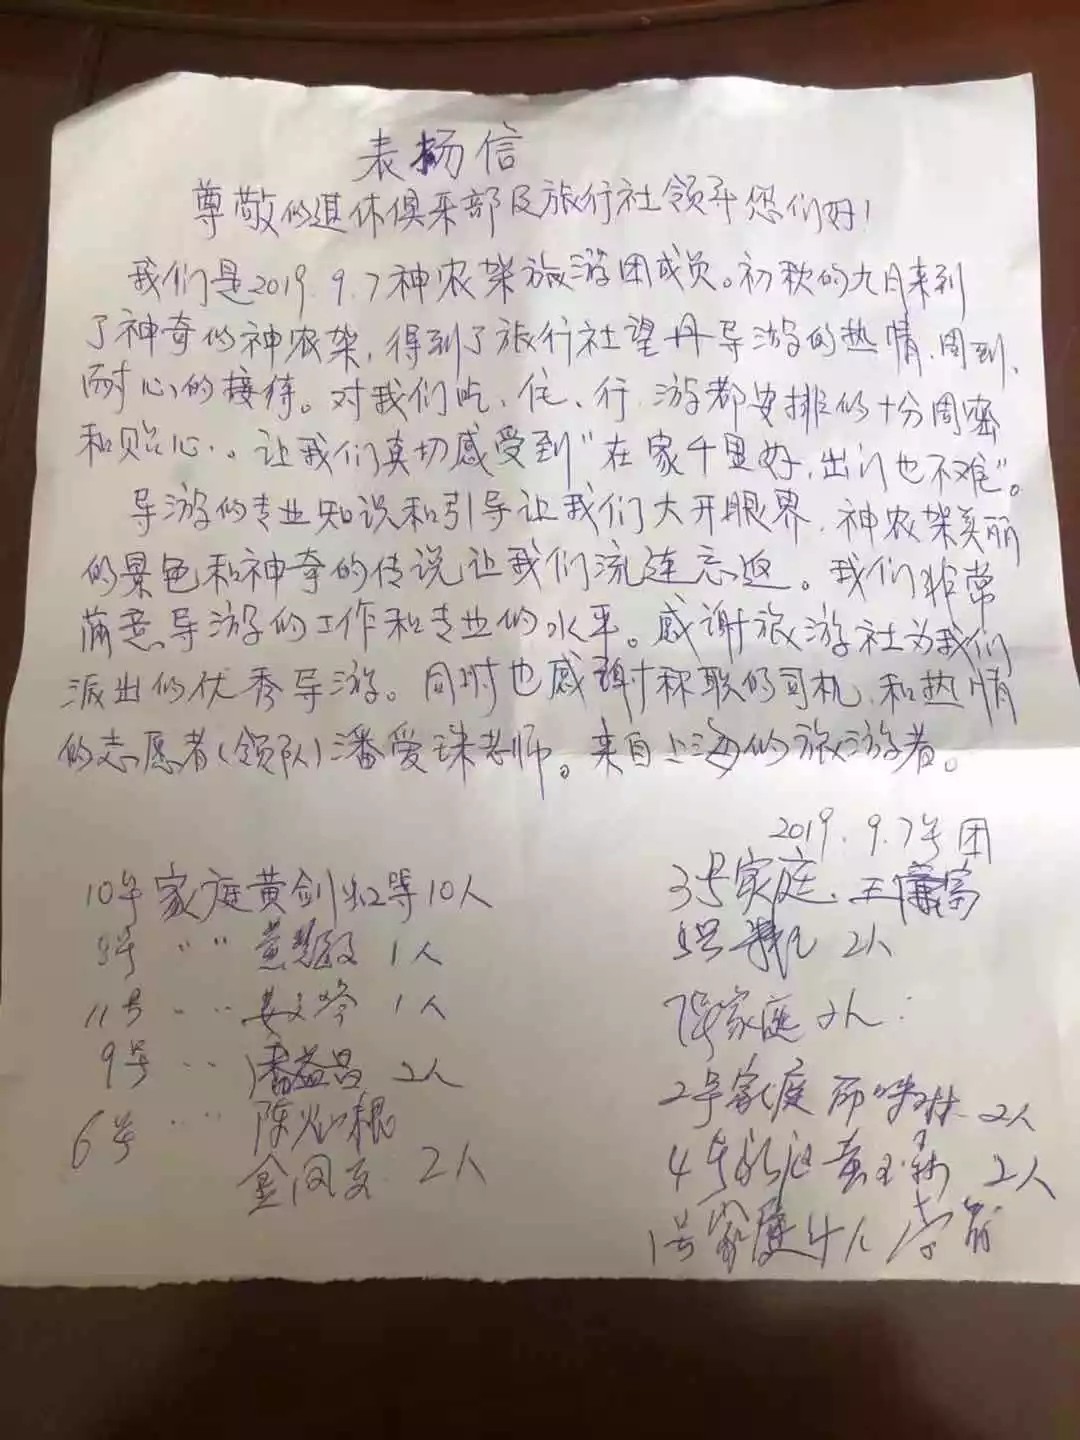 表扬信
尊敬的退休俱乐部及旅行社领导您们好！
我们是2019.9.7神农架旅游团成员。初秋的九月来到
了神奇的神农架，得到了旅行社望丹导游的热情、周到、
耐心的接待。对我们吃、住、行、游都安排的十分周密
和贴心。让我们真切感受到“在家千里好，出门也不难”。
导游的专业知识和引导让我们大开眼界，神农架美丽
的景色和神奇的传说让我们流连忘返。我们非常
满意导游的工作和专业的水平。感谢旅游社为我们
派出的优秀导游。同时也感谢称职的司机，和热情
的志愿者（领队）潘爱珠老师。来自上海的旅游者。
2019.9.7号团
10号家庭黄剑 等10人
号 〃 〃 黄 1人
11号 〃 姜文 1人
9号 〃 潘益昌 2人
6号 〃 陈 根
金凤 2人
3号家庭. 王 富
2人
7号家庭 2人
2号家庭 2人
4号家庭 黄 2人
1号家庭4人